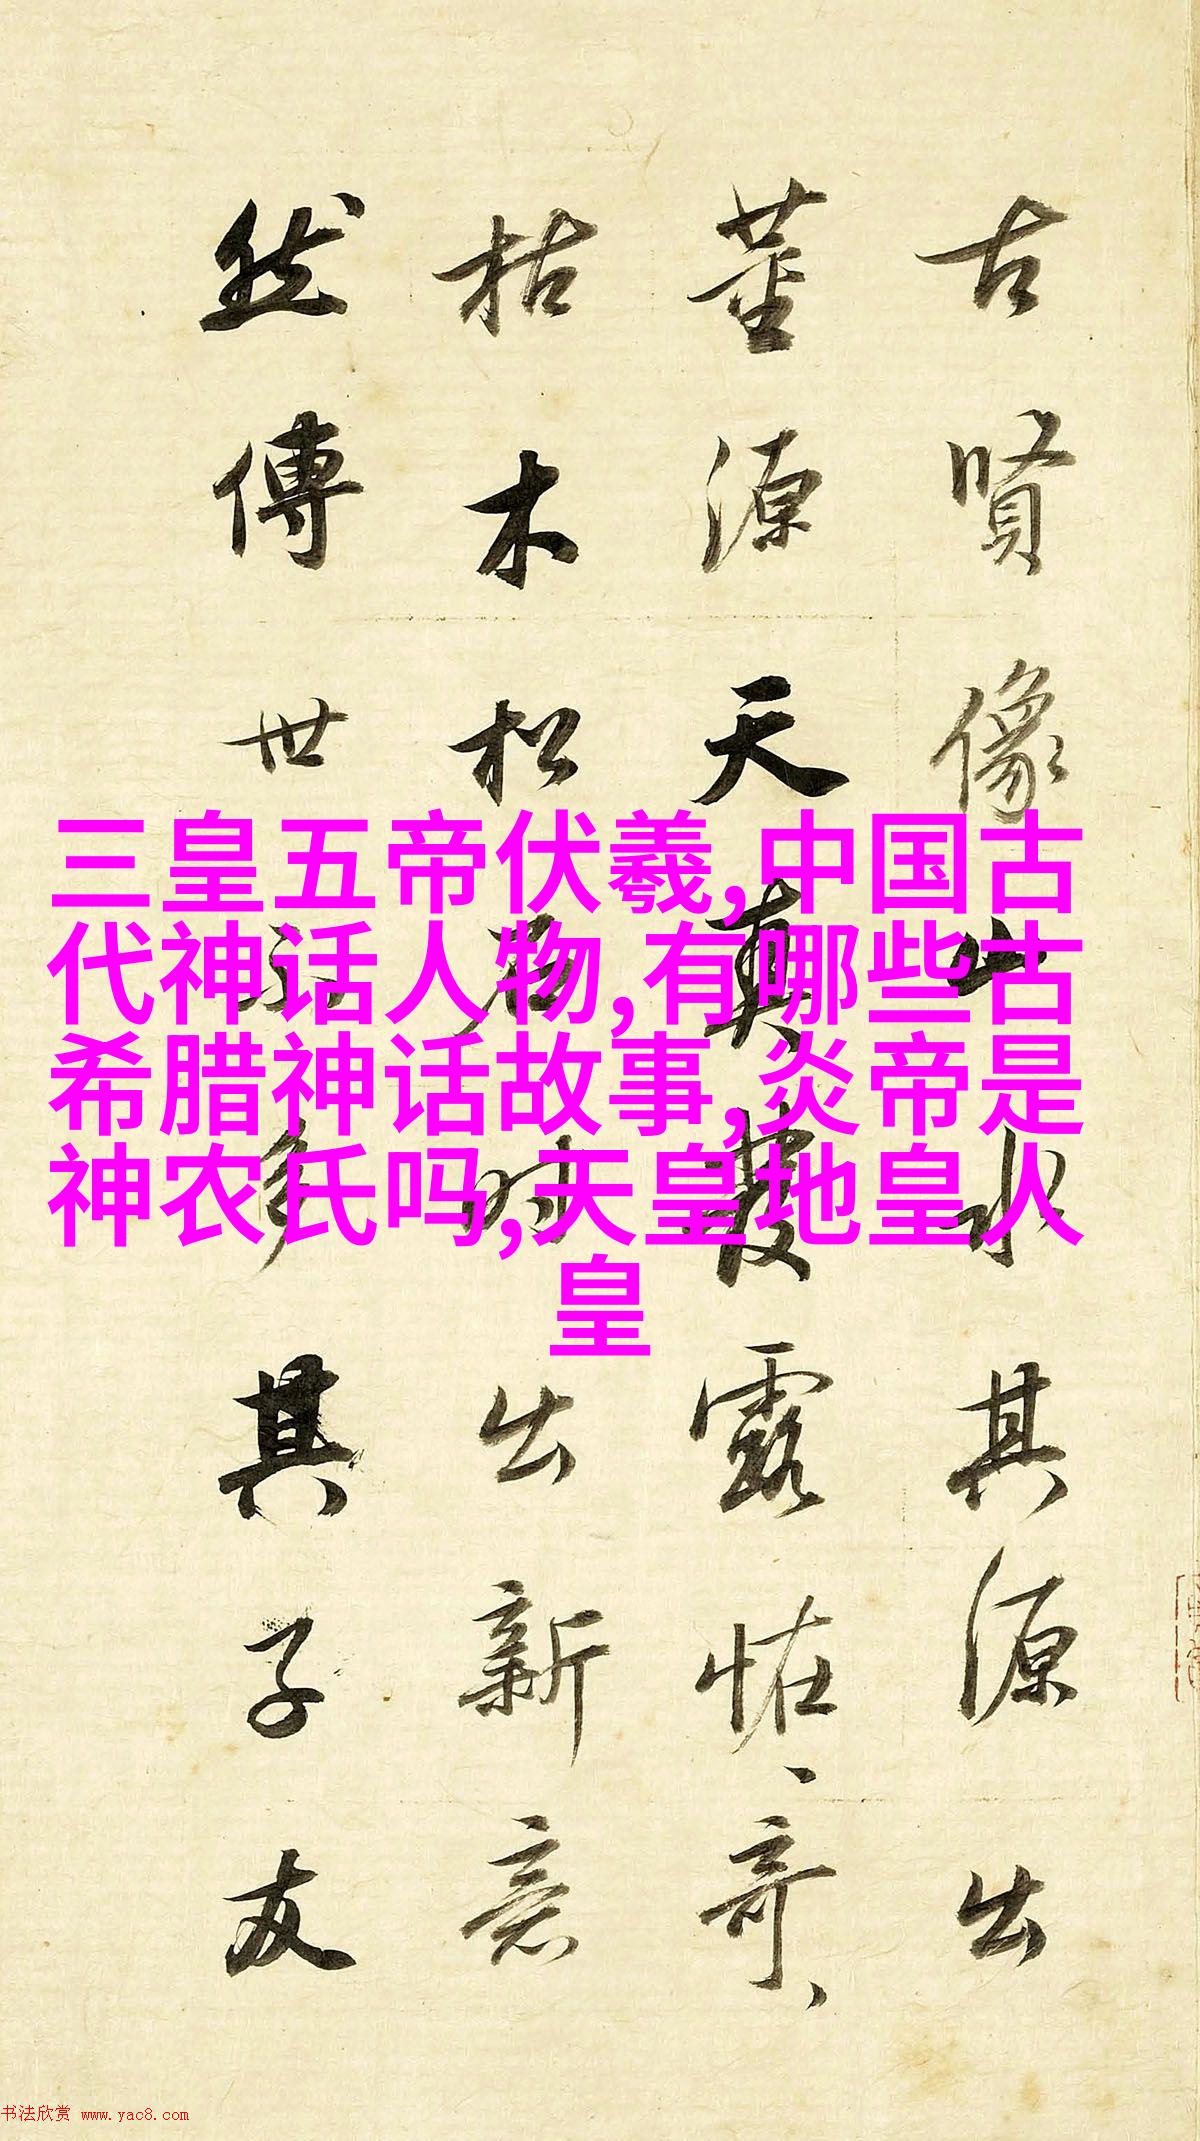 古賢像山水其源出
董源天真發露怪、奇、
枯木松石時出新意
然傳世不多其子友
三皇五帝伏羲,中国古
代神话人物,有哪些古
希腊神话故事,炎帝是
神农氏吗,天皇地皇人
皇
书法欣赏 www.yac8.com